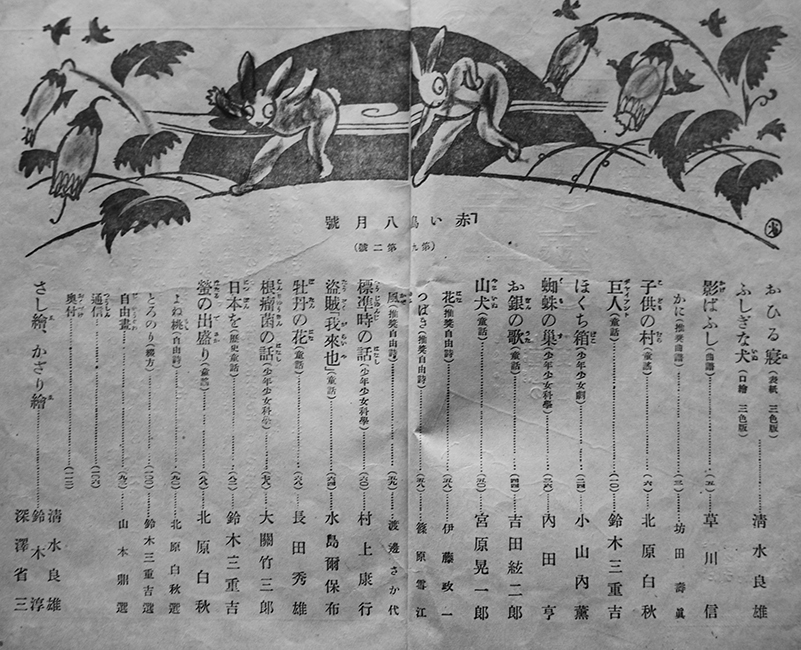 「赤い鳥」八月號
おひる寢(表紙 三色版)……淸水良雄
ふしぎな犬(口繪 三色版)
影ばふし(曲譜)……(五)……草川信
かに(推奬曲譜)……坊田壽眞
子供の村(童謠)……(六)……北原白秋
巨人(童話)……(一〇)……鈴木三重吉
ほくち箱(少年少女劇)……(二四)……小山內薰
蜘蛛の巢(少年少女科學)……(三六)……內田亨
お銀の歌(童話)……(四四)……吉田絃二郎
山犬(童話)……(五〇)……宮原晃一郎
花(推奬自由詩)……(五八)……伊藤政一
つばさ(推奬自由詩)……(五八)……篠原雪江
風(推奬自由詩)……(五九)……渡邊さか代
標準時の話(少年少女科學)……(六〇)……村上康行
盜賊「我來也」(童話)……(六四)……水島爾保布
牡丹の花(童話)……(六八)……長田秀雄
根瘤菌の話(少年少女科學)……(七八)……大關竹三郎
日本を(歷史童話)……(八二)……鈴木三重吉
螢の出盛り(童謠)……(八九)……北原白秋
よね桃(自由詩)……(九二)……北原白秋選
とろのり(綴方)……(一〇〇)……鈴木三重吉選
自由畫……(九八)……山本鼎選
通信……(一一六)
奧付……(一二二)
さし繪、かざり繪……淸水良雄
鈴木淳
深澤省三